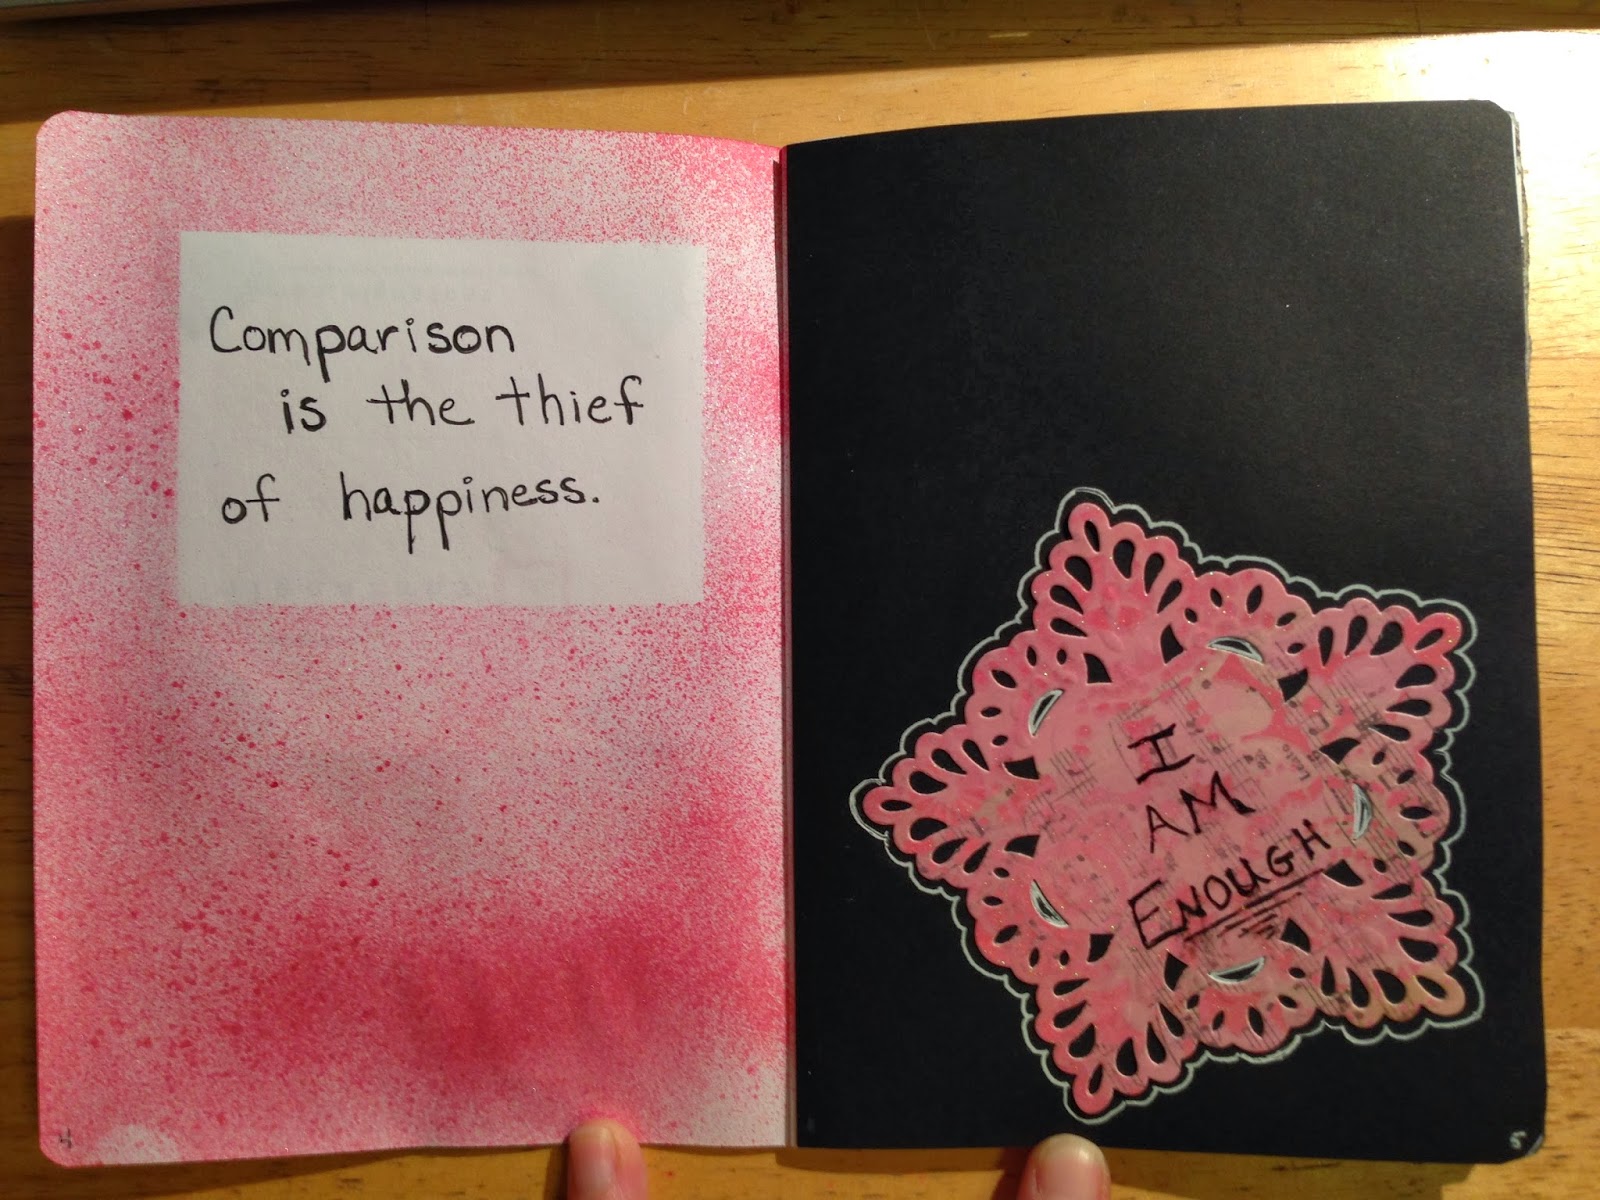 Comparison
is the thief
of happiness.
4
I
AM
ENOUGH
5